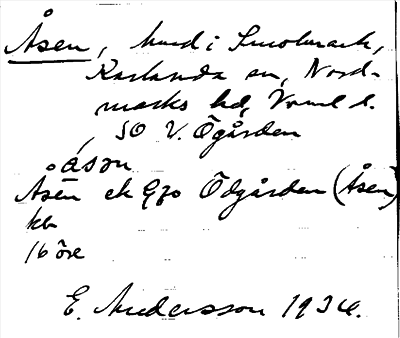 Åsen, hmd i Smolmark,
Karlanda sn, Nord-
marks hd, Vrml l.
SO V. Ögården
åsən
Åsen ek 970 Ödgården (Åsen)
kb
16 öre
E. Andersson 1934.